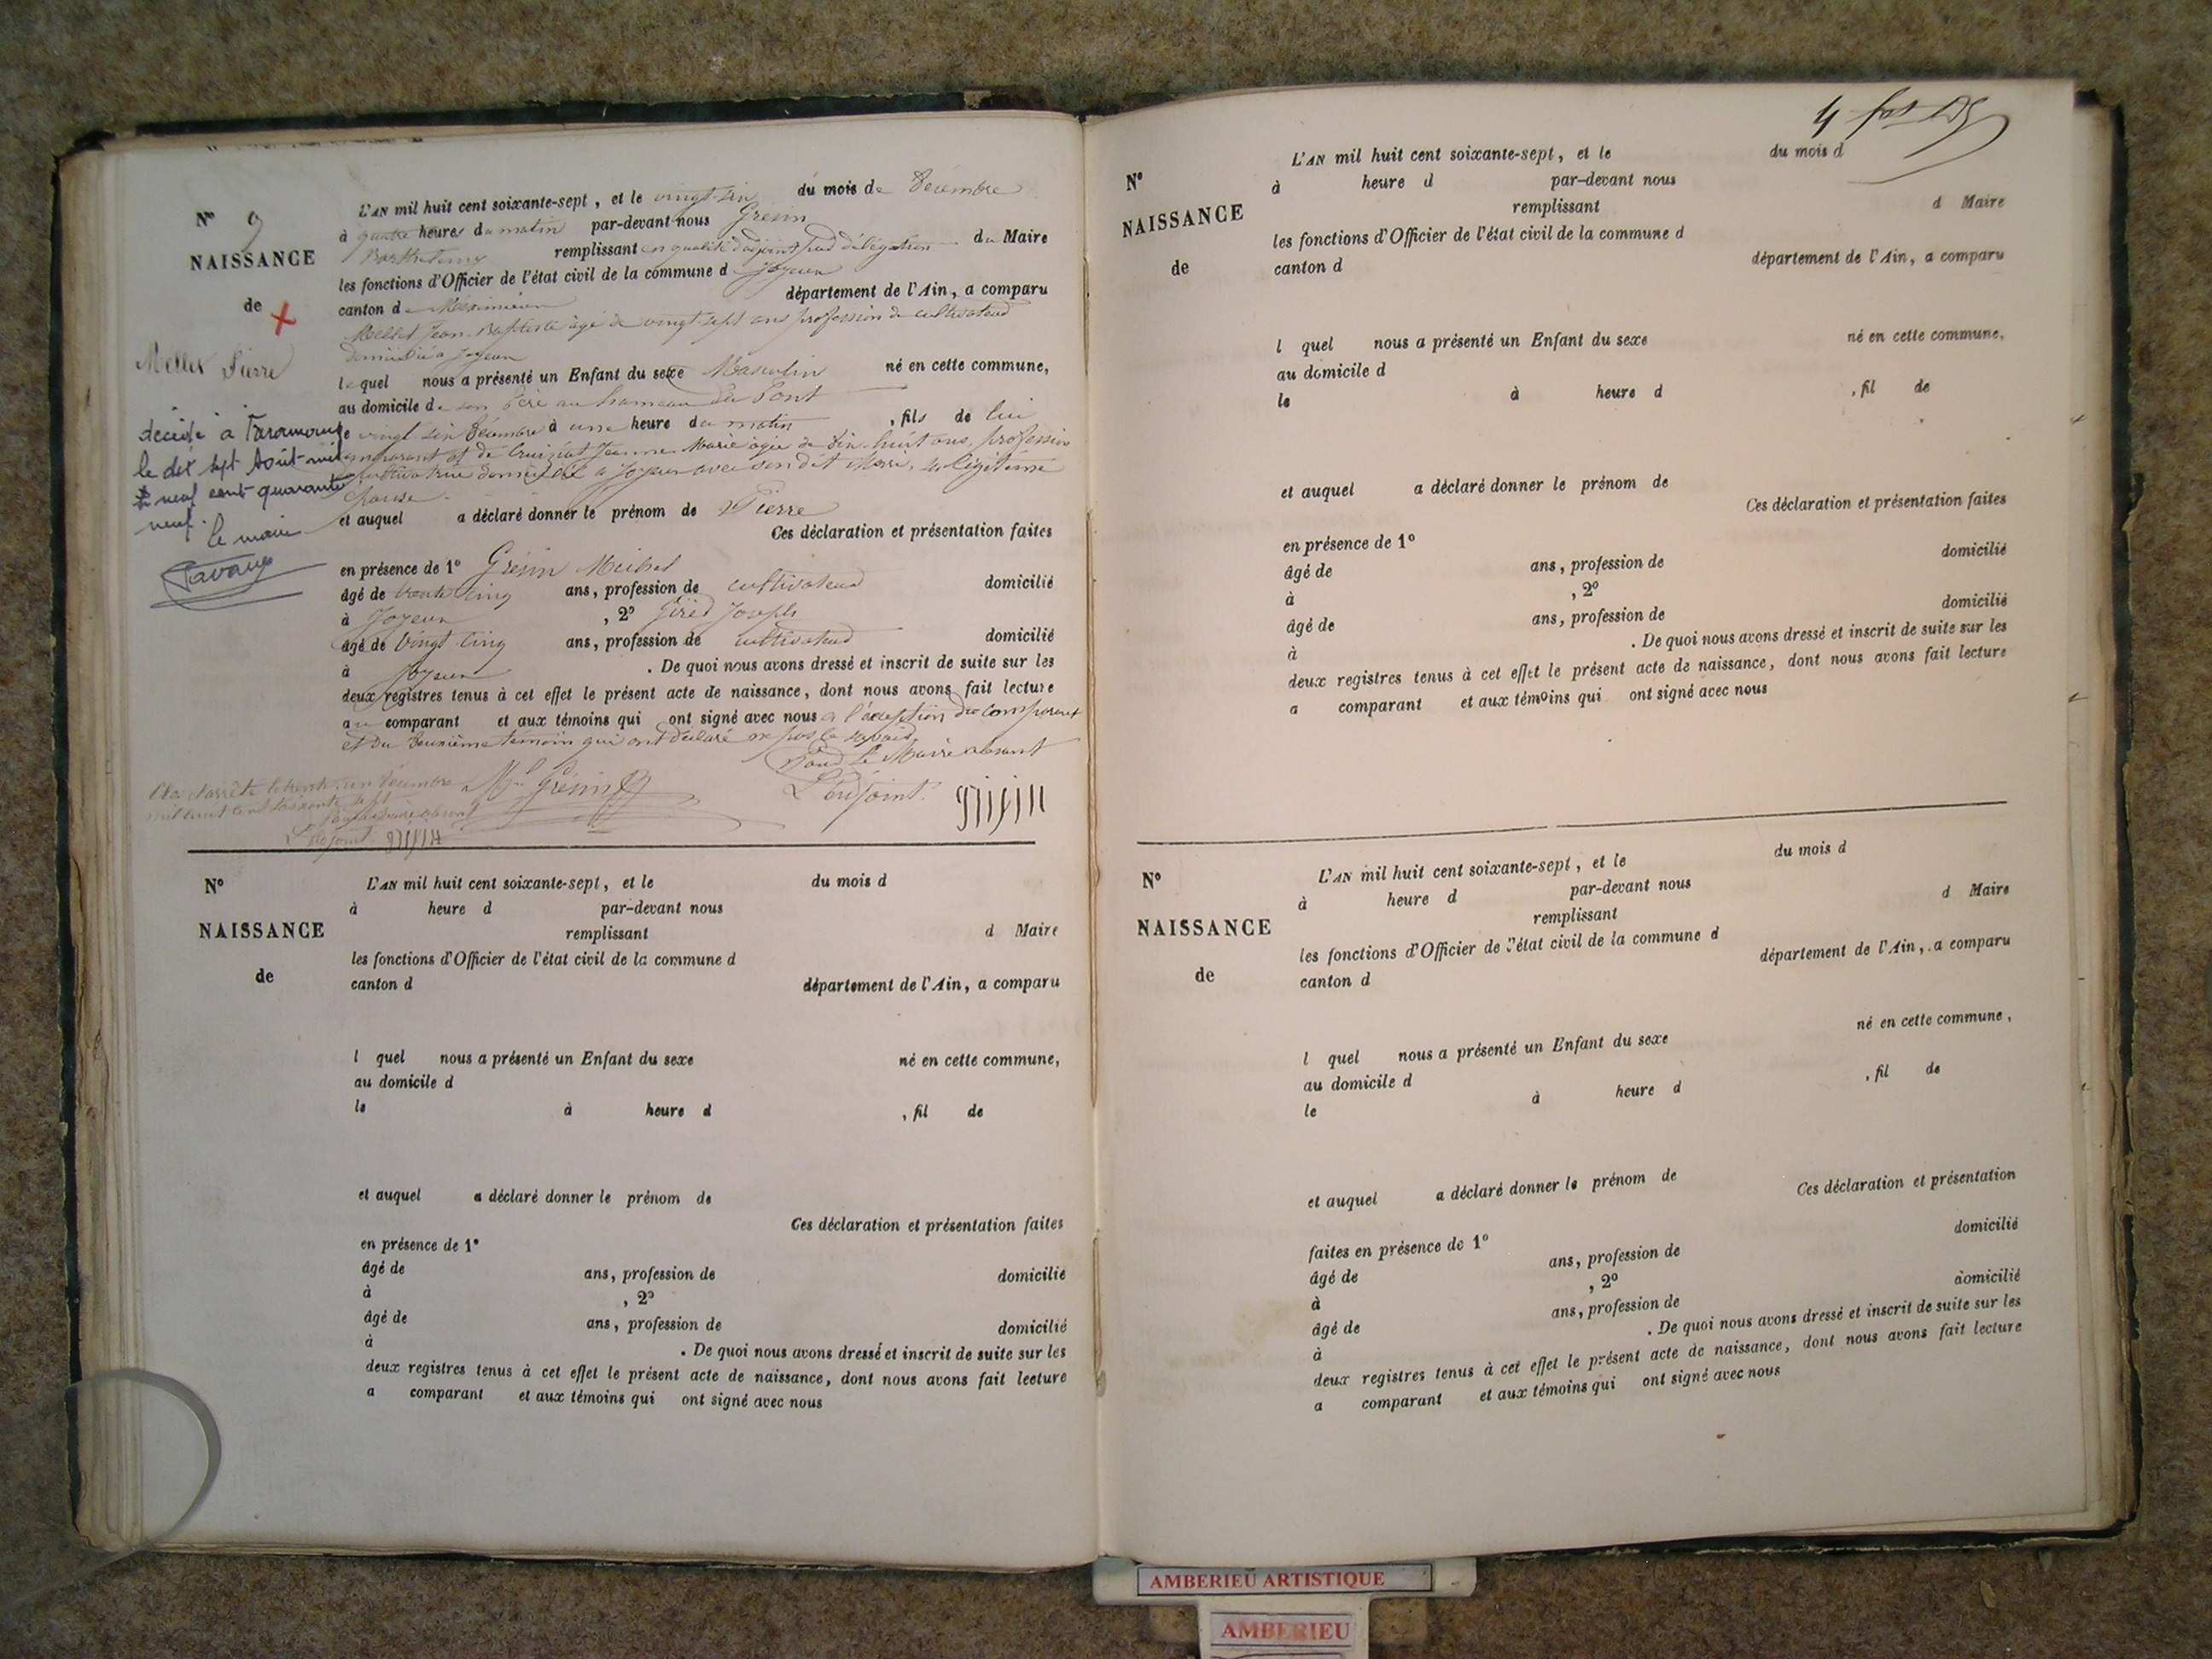 N° 9
NAISSANCE
de
Mellet Pierre
décédé à Faramans
le dix sept Août mil
neuf cent quarante
neuf.
le maire
L'AN mil huit cent soixante-sept, et le vingt-six du mois de Décembre
à quatre heures du matin par-devant nous Grésin
Barthelemy remplissant en qualité d'adjoint par délégation du Maire
les fonctions d'Officier de l'état civil de la commune d Joyeux
canton de Meximieux département de l'Ain, a comparu
Mellet Jean-Baptiste âgé de vingt sept ans profession de cultivateur
domicilié à Joyeux
lequel nous a présenté un Enfant du sexe Masculin né en cette commune,
au domicile de son Père au hameau du Pont
le vingt six Décembre à une heure du matin, fils de lui
comparant et de Jeanne Marie âgée de dix-huit ans, profession
cultivatrice domiciliée à Joyeux avec son dit Mari, sa légitime
épouse
et auquel a déclaré donner le prénom de Pierre
Ces déclaration et présentation faites
en présence de 1° Grésin Michel
âgé de trente cinq ans, profession de cultivateur domicilié
à Joyeux, 2° Joseph
âgé de vingt cinq ans, profession de cultivateur domicilié
à Joyeux. De quoi nous avons dressé et inscrit de suite sur les
deux registres tenus à cet effet le présent acte de naissance, dont nous avons fait lecture
au comparant et aux témoins qui ont signé avec nous à l'exception du comparant
et du deuxième témoin qui ont déclaré ne pas le savoir
Pour le Maire absent
L'adjoint
Grésin
Clos et arrêté le trente un Décembre
mil huit cent soixante sept
Pour le Maire absent
L'adjoint
N°
NAISSANCE
de
L'AN mil huit cent soixante-sept, et le du mois d
à heure d par-devant nous
remplissant d Maire
les fonctions d'Officier de l'état civil de la commune d
canton d département de l'Ain, a comparu
l quel nous a présenté un Enfant du sexe né en cette commune,
au domicile d
le à heure d , fil de
et auquel a déclaré donner le prénom de
Ces déclaration et présentation faites
en présence de 1°
âgé de ans, profession de domicilié
à , 2°
âgé de ans, profession de domicilié
à . De quoi nous avons dressé et inscrit de suite sur les
deux registres tenus à cet effet le présent acte de naissance, dont nous avons fait lecture
a comparant et aux témoins qui ont signé avec nous
N°
NAISSANCE
de
L'AN mil huit cent soixante-sept, et le du mois d
à heure d par-devant nous
remplissant d Maire
les fonctions d'Officier de l'état civil de la commune d
canton d département de l'Ain, a comparu
l quel nous a présenté un Enfant du sexe né en cette commune,
au domicile d
le à heure d , fil de
et auquel a déclaré donner le prénom de
Ces déclaration et présentation faites
en présence de 1°
âgé de ans, profession de domicilié
à , 2°
âgé de ans, profession de domicilié
à . De quoi nous avons dressé et inscrit de suite sur les
deux registres tenus à cet effet le présent acte de naissance, dont nous avons fait lecture
a comparant et aux témoins qui ont signé avec nous
N°
NAISSANCE
de
L'AN mil huit cent soixante-sept, et le du mois d
à heure d par-devant nous
remplissant d Maire
les fonctions d'Officier de l'état civil de la commune d
canton d département de l'Ain, a comparu
l quel nous a présenté un Enfant du sexe né en cette commune,
au domicile d
le à heure d , fil de
et auquel a déclaré donner le prénom de
Ces déclaration et présentation
faites en présence de 1° domicilié
âgé de ans, profession de
à , 2° domicilié
âgé de ans, profession de
à . De quoi nous avons dressé et inscrit de suite sur les
deux registres tenus à cet effet le présent acte de naissance, dont nous avons fait lecture
a comparant et aux témoins qui ont signé avec nous
AMBERIEU ARTISTIQUE
AMBERIEU